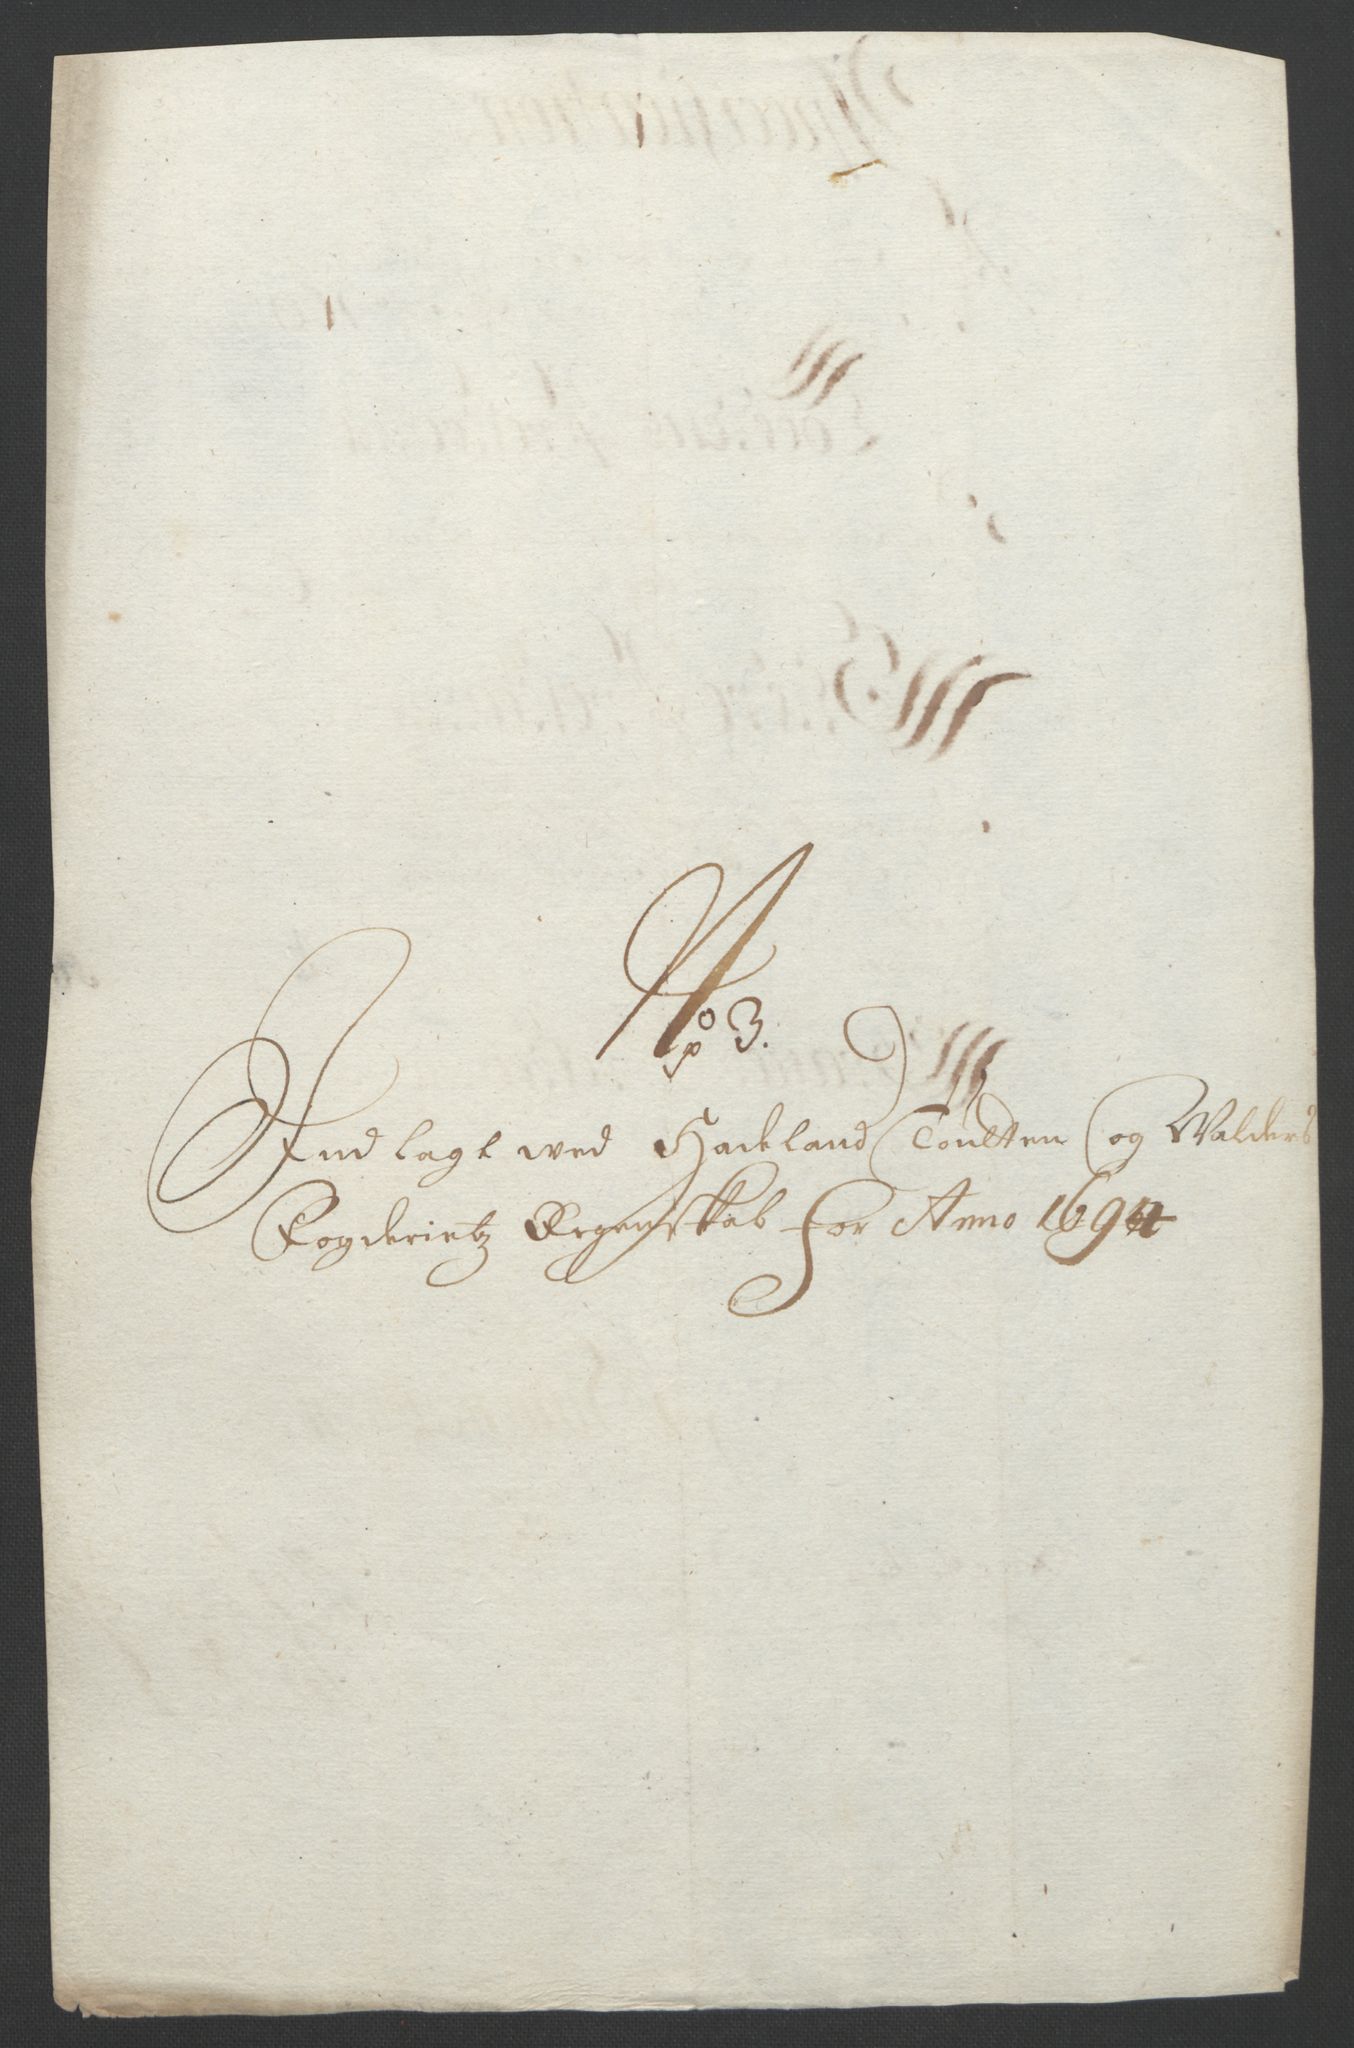 No 3.
Indlagt wed Hadeland Toulten og Walders
Fogderietz Regenskab for Anno 1694